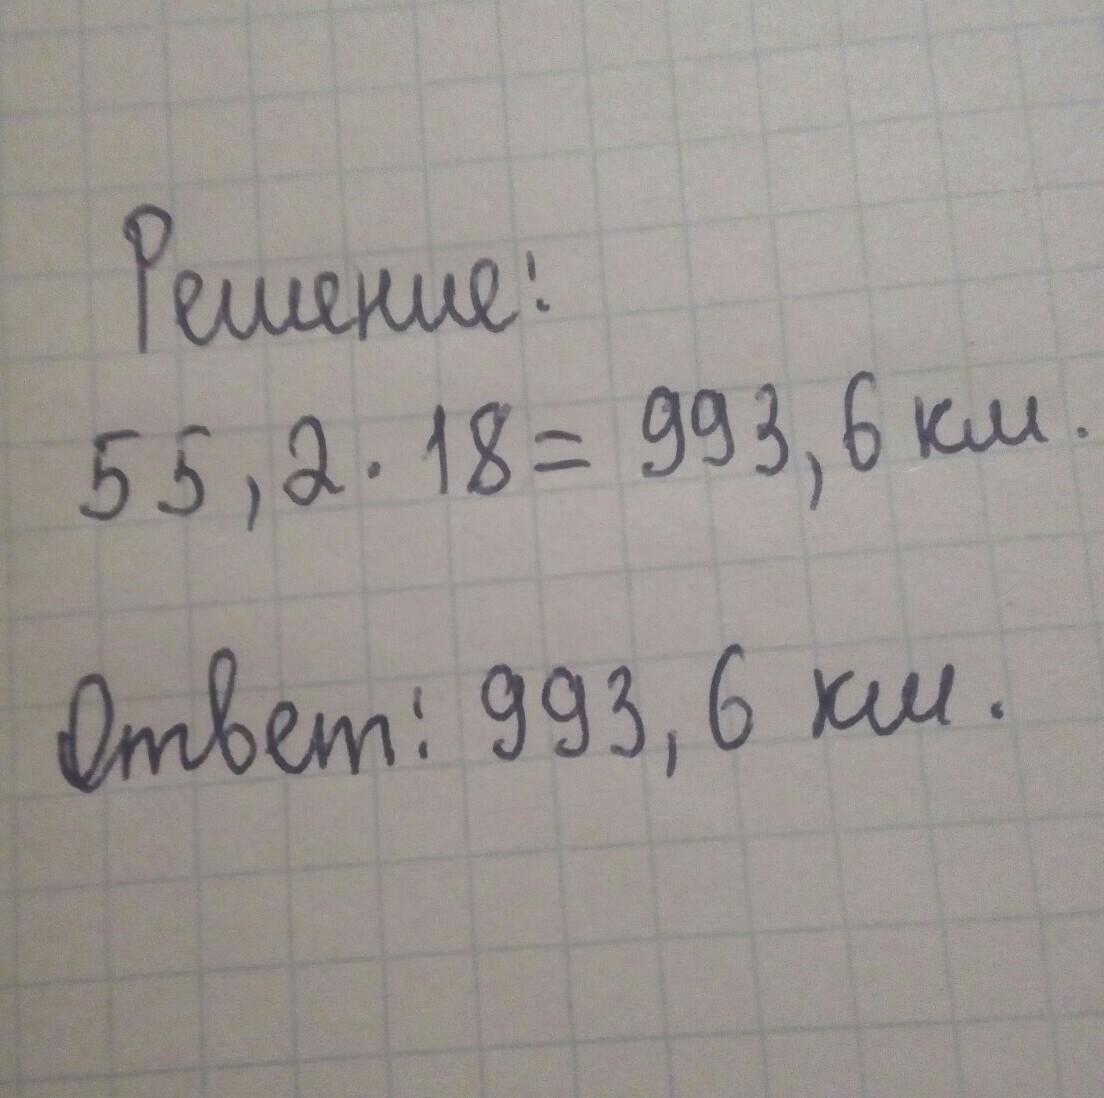 Решение:
55,2 · 18 = 993,6 км.
Ответ: 993,6 км.